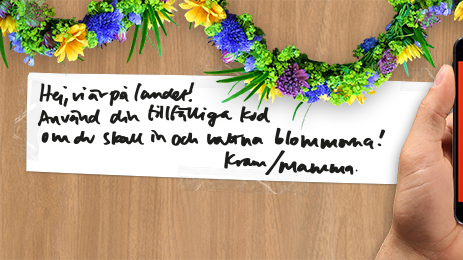 Hej, vi är på landet!
Använd din tillfälliga kod
om du skall in och vattna blommorna!
Kram/Mamma.